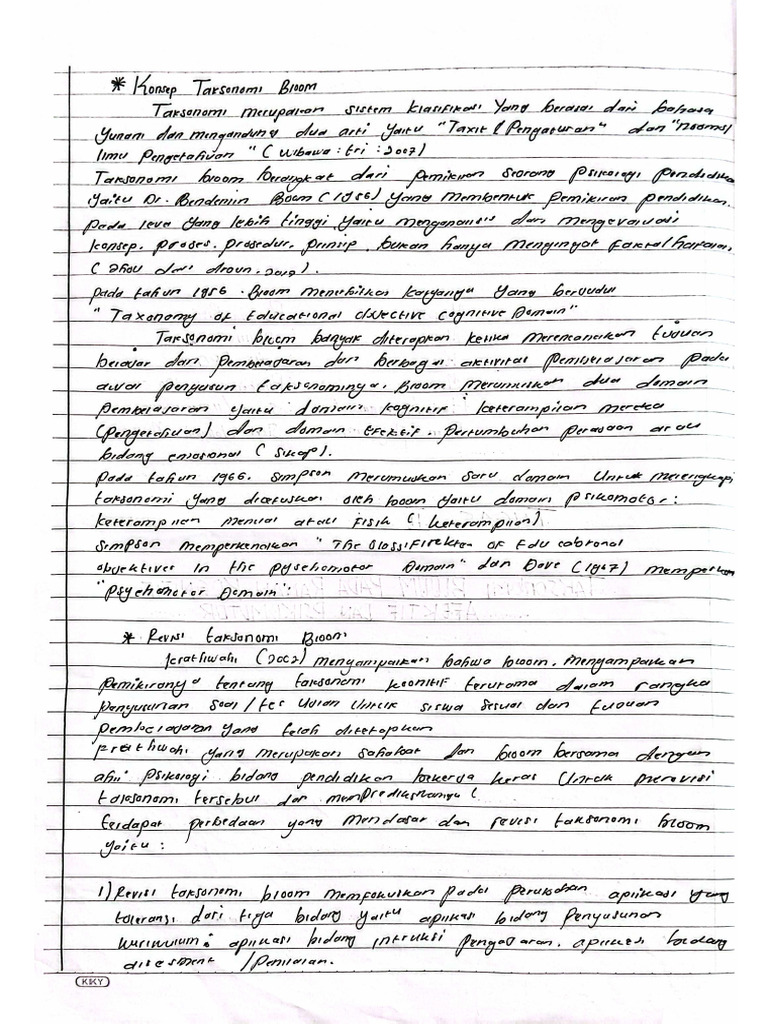 * Konsep Taksonomi Bloom
Taksonomi merupakan sistem klasifikasi yang berasal dari bahasa
yunani dan mengandung dua arti yaitu "Taxis (Pengaturan" dan "nooms/
Ilmu Pengetahuan" (Wibawa : tri : 2007)
Taksonomi bloom berangkat dari pemikiran seorang psikologi pendidika
yaitu Dr. Bendemin Boom (1956) yang membentuk pemikiran pendidikan.
pada level yang lebih tinggi yaitu menganalisis dan mengevaluasi
konsep. proses. prosedur. prinsip. bukan hanya mengingat fakta/hapalan,
dari 2019).
pada tahun 1956. Bloom menerbitkan karyanya yang berjudul
"Taxonomy of Educational objective cognitive Domain"
Taksonomi bloom banyak diterapkan ketika merencanakan tujuan
belajar dan pembelajaran dan berbagai aktivitas pembelajaran pada
awal penyusun taksonominya. Bloom merumuskan dua domain
pembelajaran yaitu domain kognitif : keterampilan mereka
(pengetahuan) dan domain efektif. pertumbuhan perasaan atau
bidang emosional (sikap).
pada tahun 1966. Simpson merumuskan satu domain untuk melengkapi
taksonomi yang dicetuskan oleh bloom yaitu domain psikomotor :
keterampilan menual atau fisik (keterampilan)
Simpson memperkenalkan "The of
objektives in the psychomotor Domain" dan Dave (1967)
"psychomotor Domain".
* Revisi taksonomi Bloom
krathwahl (2002) mengampaikan bahwa bloom. mengampaikan
pemikiranya tentang taksonomi kognitif terutama dalam rangka
penyusunan soal/tes ujian untuk siswa sesuai dan tujuan
pembelajaran yang telah ditetapkan
krathwahl yang merupakan sahabat dan bloom bersama dengan
ahli psikologi bidang pendidikan bekerja keras untuk merevisi
taksonomi tersebut dan
terdapat perbedaan yang mendasar dari revisi taksonomi bloom
yaitu :
1) Revisi taksonomi bloom memfokuskan pada perubahan aplikasi yang
dari tiga bidang yaitu aplikasi bidang penyusunan
kurikulum : aplikasi bidang intruksi pengajaran. aplikasi bidang
assesment / penilaian.
KIKY